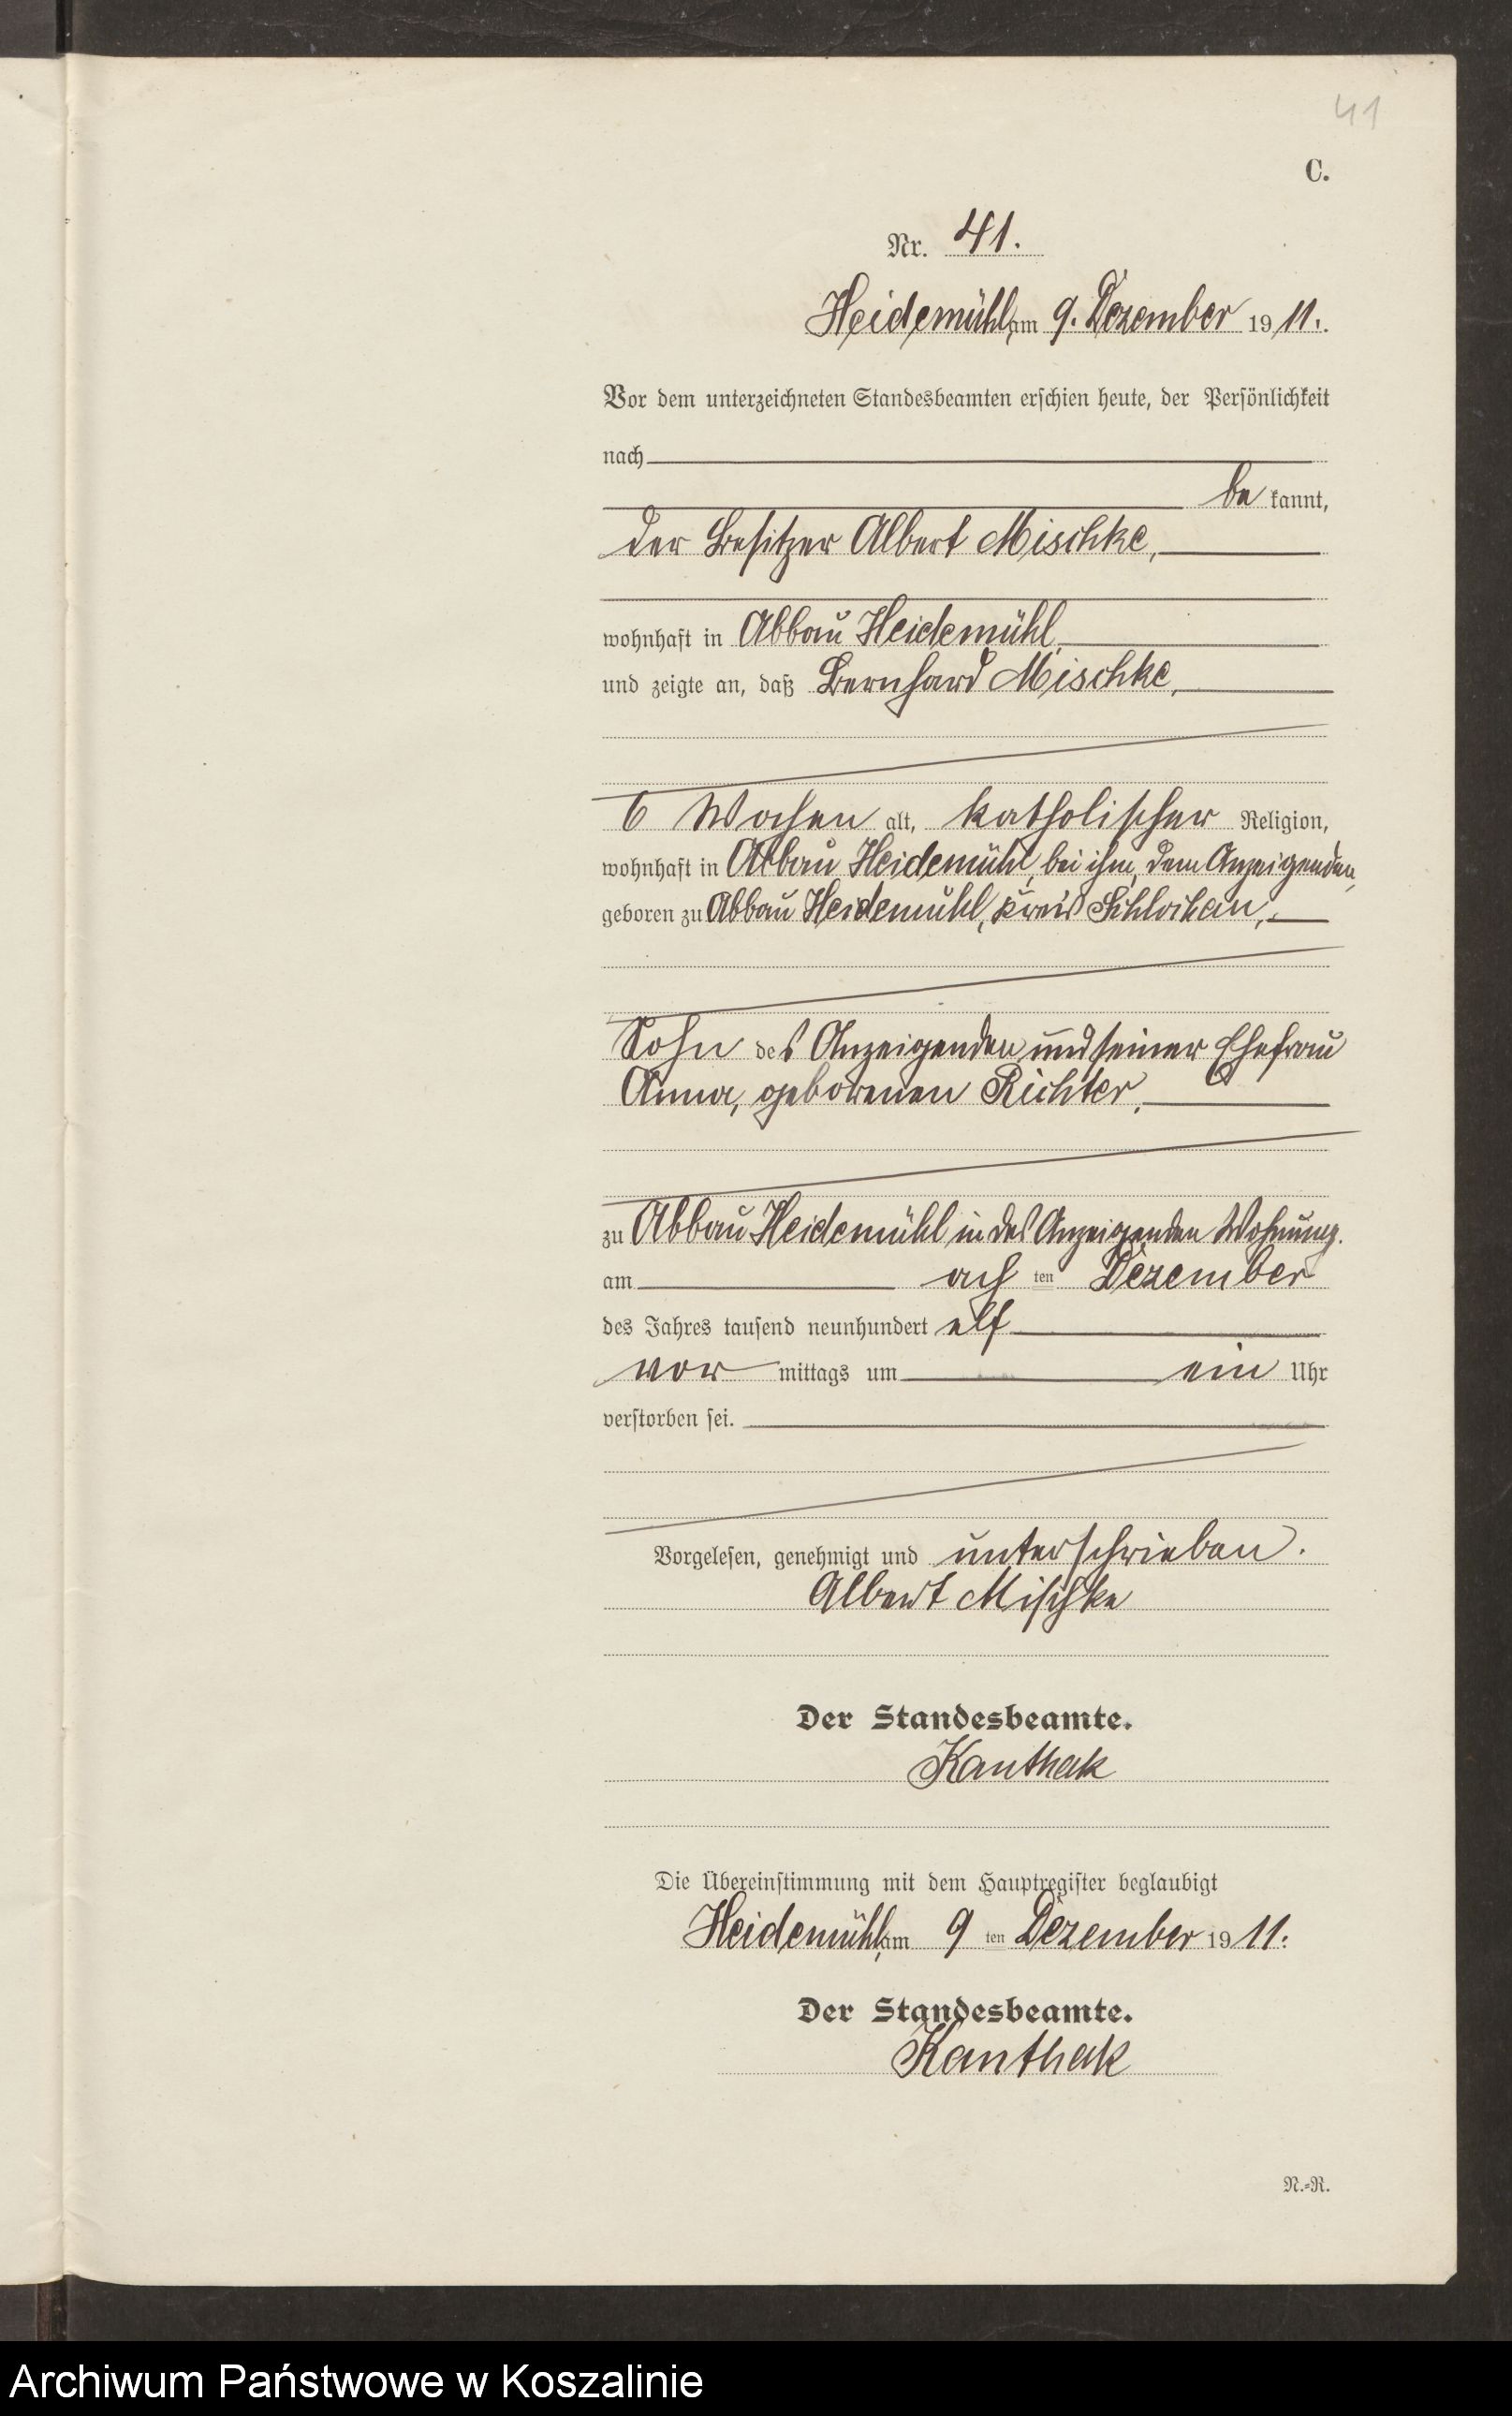 41
C.
Nr. 41.
Heidemühl, am 9. Dezember 1911.
Vor dem unterzeichneten Standesbeamten erschien heute, der Persönlichkeit
nach
be kannt,
der Besitzer Albert Mischke,
wohnhaft in Abbau Heidemühl,
und zeigte an, daß Bernhard Mischke,
6 Wochen alt, katholischer Religion,
wohnhaft in Abbau Heidemühl, bei ihm, dem Anzeigenden,
geboren zu Abbau Heidemühl, Kreis Schlochau,
Sohn des Anzeigenden und seiner Ehefrau
Anna, geborenen Richter,
zu Abbau Heidemühl in des Anzeigenden Wohnung.
am ach ten Dezember
des Jahres tausend neunhundert elf
vor mittags um ein Uhr
verstorben sei.
Vorgelesen, genehmigt und unterschrieben.
Albert Mischke
Der Standesbeamte.
Kanthak
Die Übereinstimmung mit dem Hauptregister beglaubigt
Heidemühl, am 9 ten Dezember 1911.
Der Standesbeamte.
Kanthak
N.-R.
Archiwum Państwowe w Koszalinie